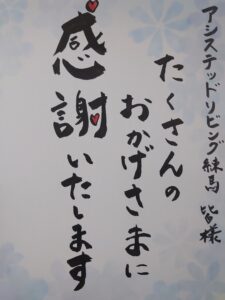 アシステッドリビング練馬 皆様
たくさんの
おかげさまに
感謝いたします